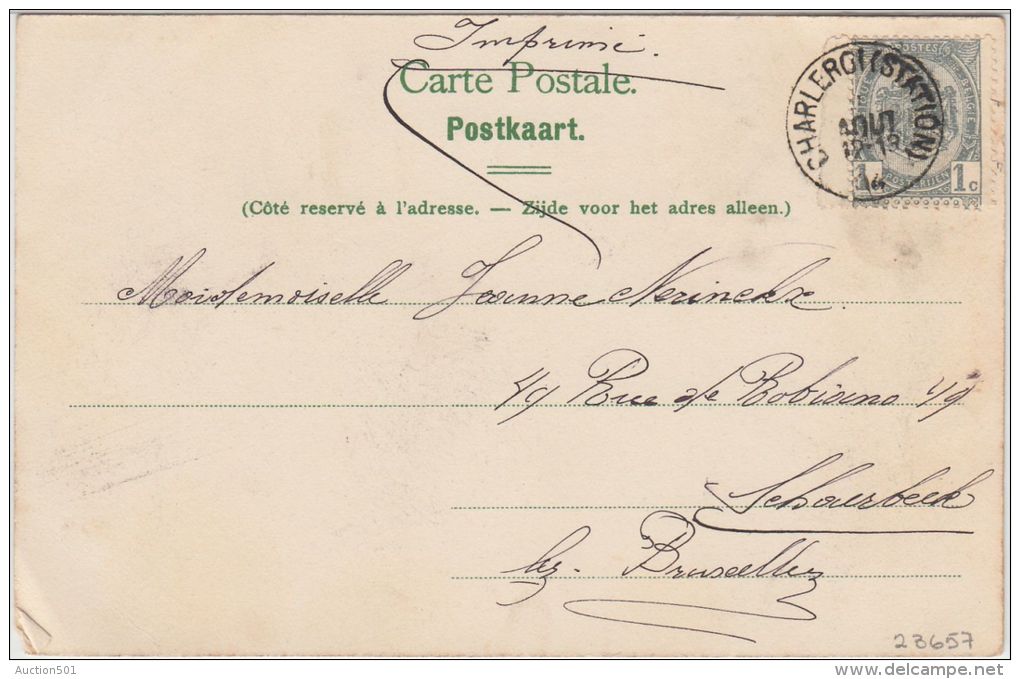 Imprimé.
Carte Postale.
Postkaart.
(Côté reservé à l'adresse. — Zijde voor het adres alleen.)
CHARLEROI (STATION)
AOUT
12-13
POSTES
BELGIE
POSTERIJEN
1 1c
Mademoiselle Jeanne Nerinckx.
49 Rue de Robiano 49
Schaerbeek
lez - Bruxelles
23657
Auction501
www.delcampe.net